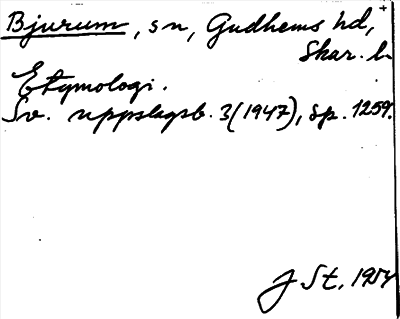 Bjurum, sn, Gudhems hd,
Skar. l.
Etymologi.
Sv. uppslagsb. 3(1947), sp. 1259.
J St. 1954